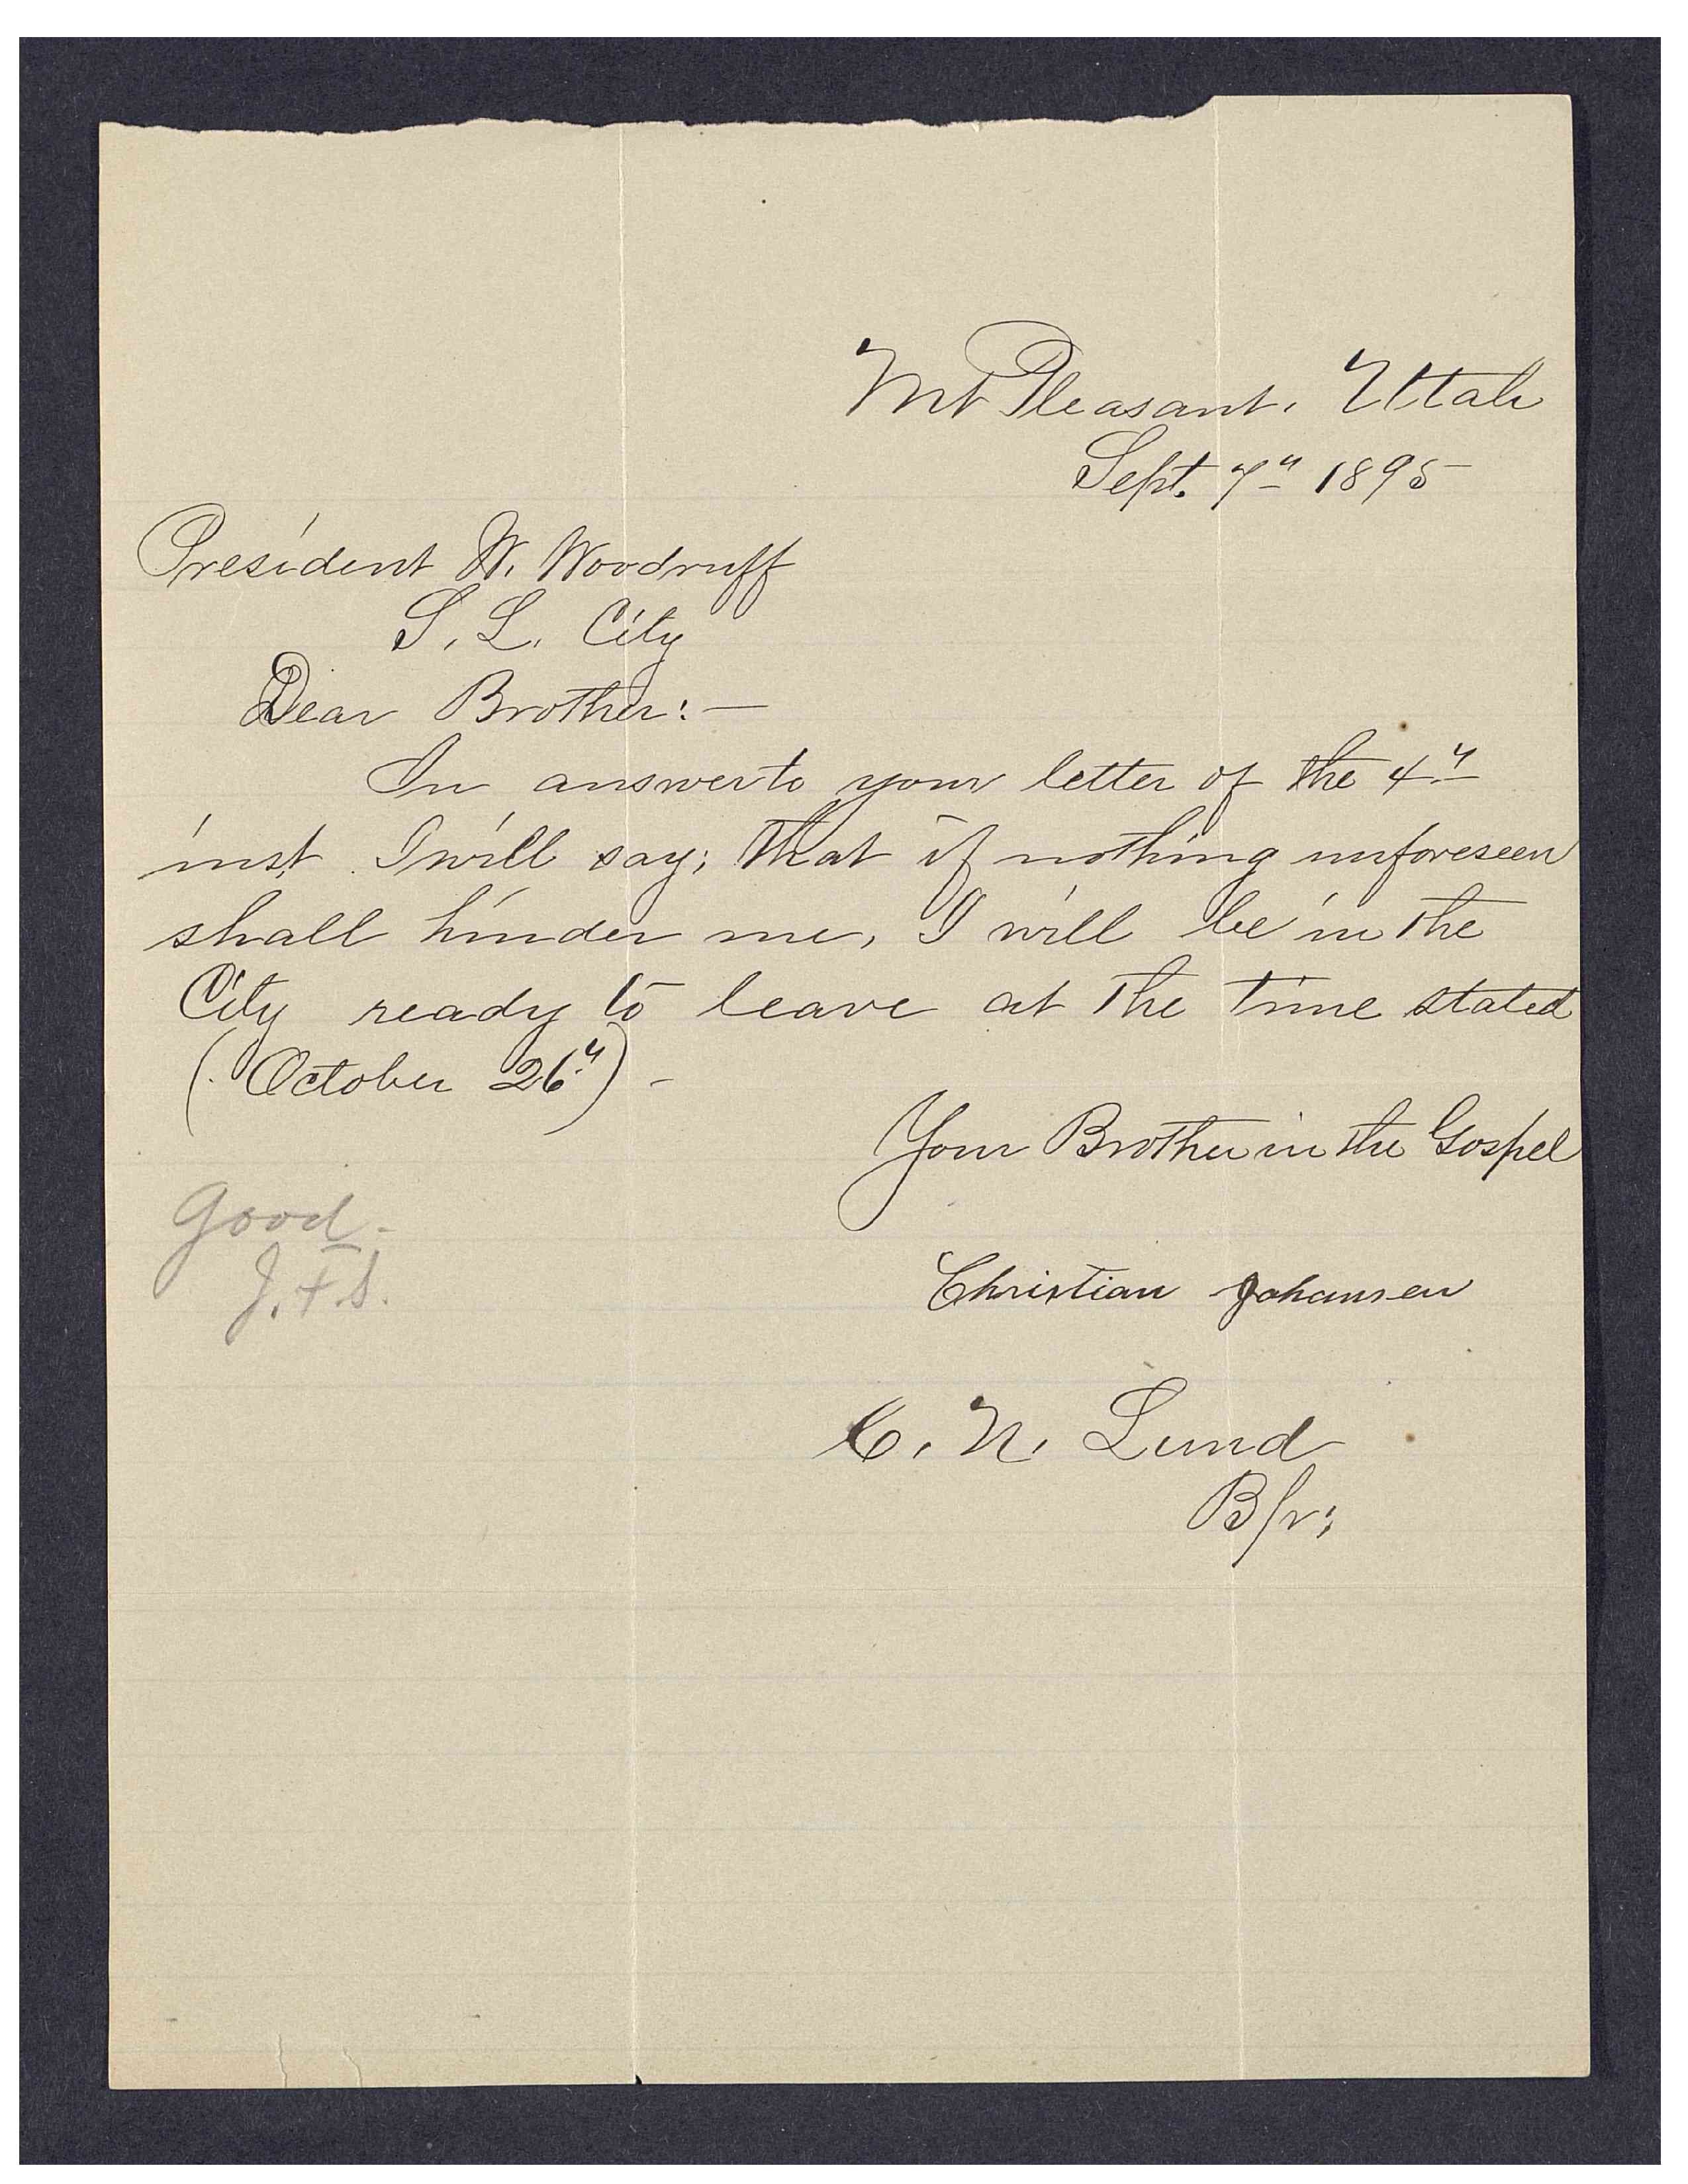 Mt Pleasant. Utah
Sept. 7" 1895
President W. Woodruff
S. L. City
Dear Brother:—
In answer to your letter of the 4"
inst. I will say; that if nothing unforeseen
shall hinder me, I will be in the
City ready to leave at the time stated
(October 26") -
Your Brother in the Gospel
Good -
J. F. S.
Christian Johansen
C. N. Lund
B/r;